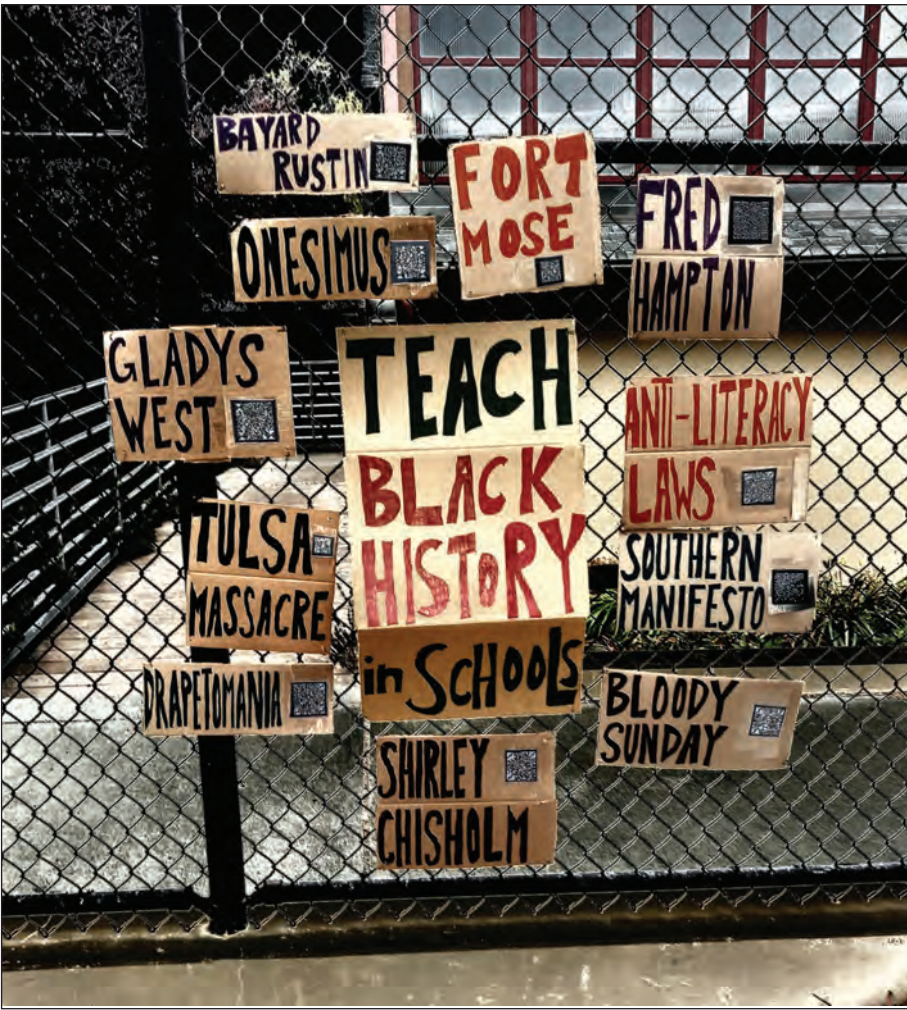 BAYARD
RUSTIN
FORT
MOSE
FRED
HAMPTON
ONESIMUS
GLADYS
WEST
TEACH
BLACK
HISTORY
in SCHOOLS
ANTI-LITERACY
LAWS
TULSA
MASSACRE
SOUTHERN
MANIFESTO
DRAPETOMANIA
BLOODY
SUNDAY
SHIRLEY
CHISHOLM